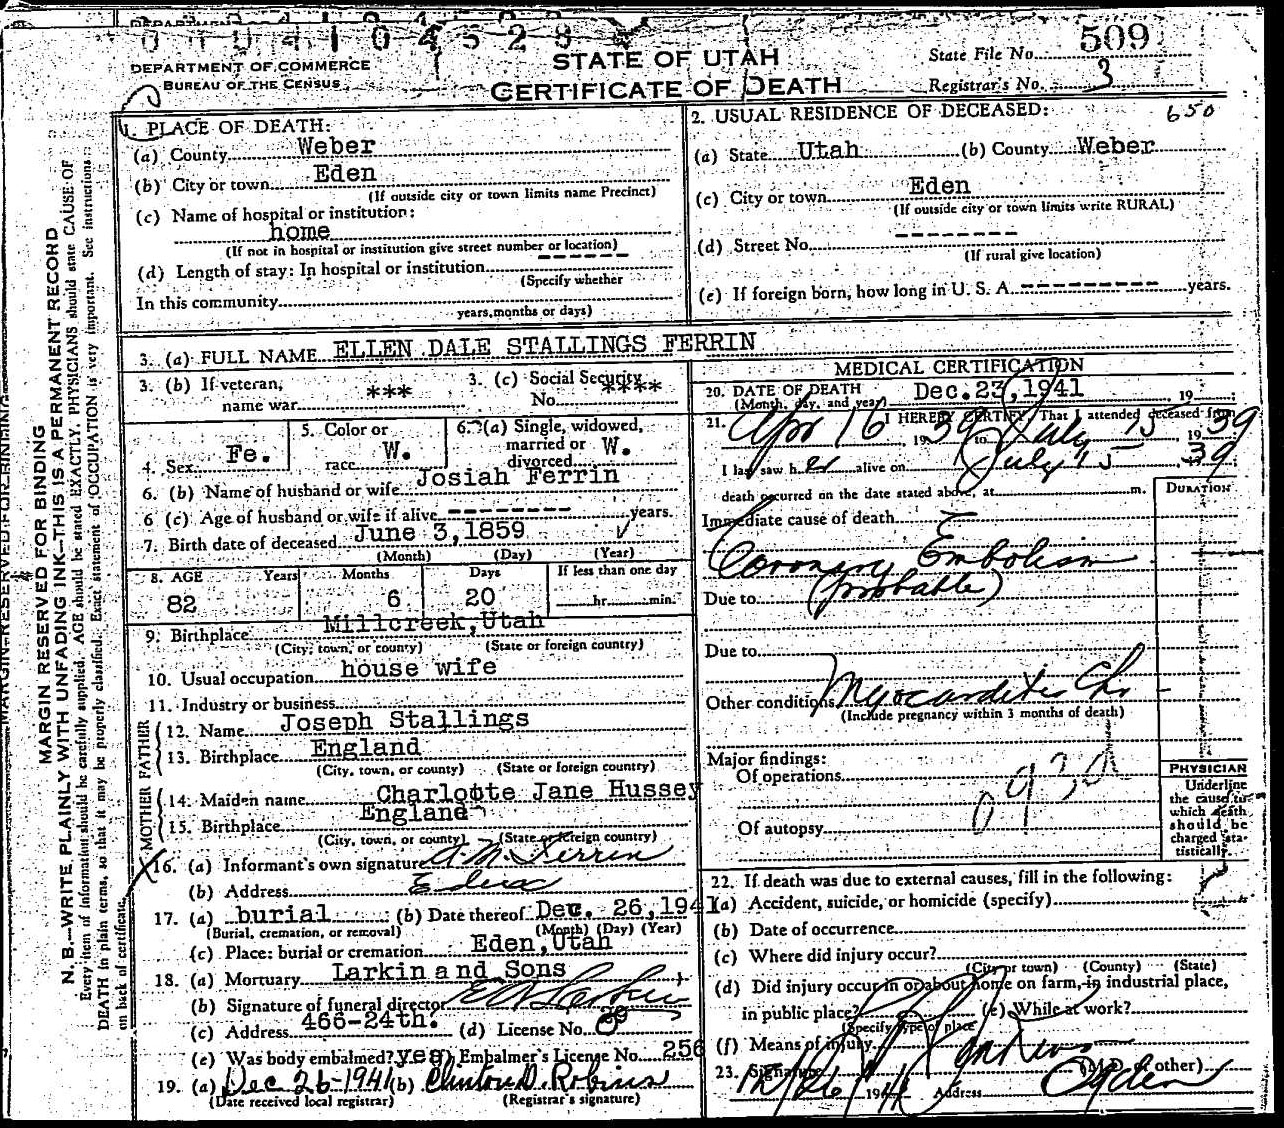 STATE OF UTAH
CERTIFICATE OF DEATH
DEPARTMENT OF COMMERCE
BUREAU OF THE CENSUS
State File No. 509
Registrar's No. 3
MARGIN RESERVED FOR BINDING
N. B.—WRITE PLAINLY WITH UNFADING INK—THIS IS A PERMANENT RECORD
Every item of information should be carefully supplied. AGE should be stated EXACTLY. PHYSICIANS should state CAUSE OF
DEATH in plain terms, so that it may be properly classified. Exact statement of OCCUPATION is very important. See instructions
on back of certificate.
1. PLACE OF DEATH:
(a) County Weber
(b) City or town Eden
(If outside city or town limits name Precinct)
(c) Name of hospital or institution:
home
(If not in hospital or institution give street number or location)
(d) Length of stay: In hospital or institution ------
(Specify whether
In this community
years, months or days)
2. USUAL RESIDENCE OF DECEASED: 650
(a) State Utah (b) County Weber
(c) City or town Eden
(If outside city or town limits write RURAL)
(d) Street No. --------
(If rural give location)
(e) If foreign born, how long in U. S. A. --------- years.
3. (a) FULL NAME ELLEN DALE STALLINGS FERRIN
3. (b) If veteran, name war ***
3. (c) Social Security No. ****
4. Sex Fe.
5. Color or race W.
6. (a) Single, widowed, married or divorced W.
6. (b) Name of husband or wife Josiah Ferrin
6 (c) Age of husband or wife if alive -------- years.
7. Birth date of deceased June 3,1859
(Month) (Day) (Year)
8. AGE Years Months Days If less than one day
82 6 20 hr. min.
9. Birthplace Millcreek,Utah
(City, town, or county) (State or foreign country)
10. Usual occupation house wife
11. Industry or business
FATHER
12. Name Joseph Stallings
13. Birthplace England
(City, town, or county) (State or foreign country)
MOTHER
14. Maiden name Charlotte Jane Hussey
15. Birthplace England
(City, town, or county) (State or foreign country)
16. (a) Informant's own signature A. M. Ferrin
(b) Address Eden
17. (a) burial (b) Date thereof Dec. 26,1941
(Burial, cremation, or removal) (Month) (Day) (Year)
(c) Place: burial or cremation Eden,Utah
18. (a) Mortuary Larkin and Sons
(b) Signature of funeral director Larkin
(c) Address 466-24th. (d) License No.
(e) Was body embalmed? yes Embalmer's License No. 256
19. (a) Dec 26-1941 (b) Clinton D. Robins
(Date received local registrar) (Registrar's signature)
MEDICAL CERTIFICATION
20. DATE OF DEATH Dec.23,1941 19
(Month, day, and year)
21. I HEREBY CERTIFY That I attended deceased from
Apr 16, 1939 to July 15 1939
I last saw her alive on July 15 39
death occurred on the date stated above, at m.
DURATION
Immediate cause of death
Coronary Embolism
Due to (probable)
Due to
Other conditions Myocarditis Chr
(Include pregnancy within 3 months of death)
Major findings:
Of operations
Of autopsy
PHYSICIAN
Underline
the cause to
which death
should be
charged sta-
tistically.
22. If death was due to external causes, fill in the following:
(a) Accident, suicide, or homicide (specify)
(b) Date of occurrence
(c) Where did injury occur?
(City or town) (County) (State)
(d) Did injury occur in or about home on farm, in industrial place,
in public place? (e) While at work?
(Specify type of place)
(f) Means of injury
23. Signature (M.D. or other)
12/26 1941 Address Ogden